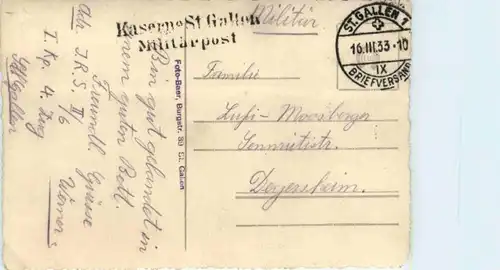 Kaserne St. Gallen
Militärpost
Militär
ST. GALLEN 1
16.III.33-10
IX
BRIEFVERSAND
Familie
Lusi-Moosberger
Sennwitstr.
Degersheim.
Foto-Baer, Burgstr. 30 St. Gallen
Bin gut gelandet in
einem guten Bett.
Freundl. Grüsse
Werner.
Adr. I.R.S. II/6
I. Kp. 4. Zug
St. Gallen